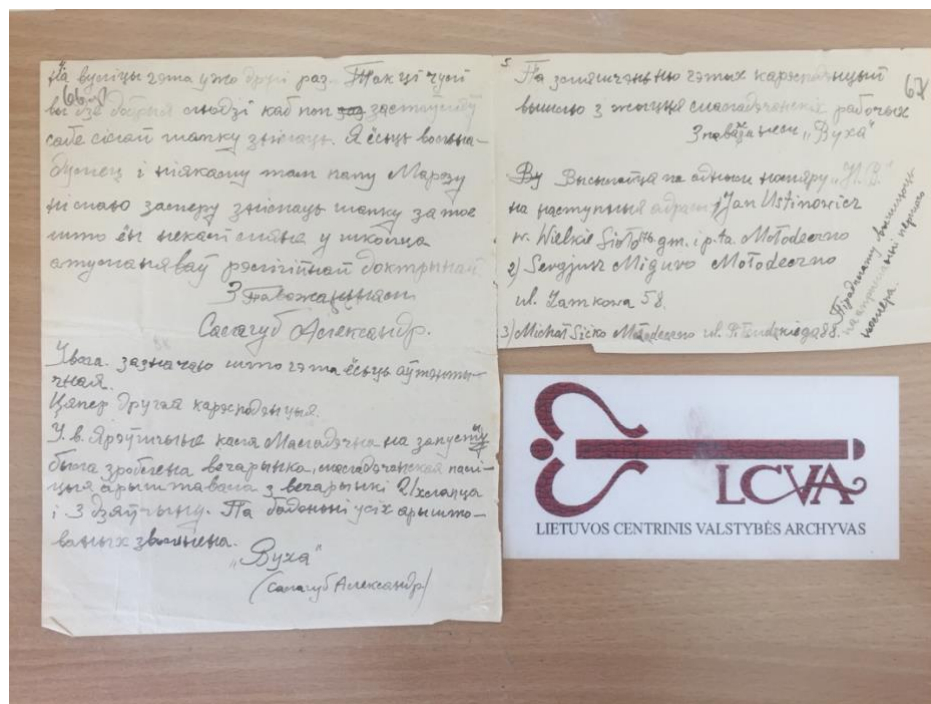 На вуліцы гэта ужо другі раз. Так ці чулі
66
вы дзе добрыя людзі каб поп заставіў
сабе сілай шапку здымаць. Я ёсць вольна-
думец і ніякаму там папу Марозу
ня маю замеру здымаць шапку за тое
што ён некалі мяне у школцы
атуманяваў рэлігійнай доктрынай
З Паважаньнем
Салагуб Александр.
Увага. зазначаю што гэта ёсьць аўтэнты-
чная.
Цяпер другая карэспадэнцыя.
У. в. Яроўшчына каля Маладэчна на запусты
была зроблена вечарынка, маладэчанская палі-
цыя арыштавала з вечарынкі 21 хлапца
і 3 дзяўчыну. Па баданьні усіх арышто-
ваных звольнена.
„Вуха"
(Салагуб Александр)
5.
67
Па зьмяшчэньню гэтых карэспандэнцый
вышлю з жыцця маладэчанскіх рабочых
З паважаньнем „Вуха"
Ву Высылайця па адным нумару „Н.В."
на наступныя адрасы 1) Jan Ustinowicz
w. Wielkie Sioło gm. i p-ta. Mołodeczno
2) Sergjusz Miguwo Mołodeczno
ul. Zamkowa 58.
3) Michał Sićko Mołodeczno ul. Piłsudskiego 88.
нумера.
LCVA
LIETUVOS CENTRINIS VALSTYBĖS ARCHYVAS